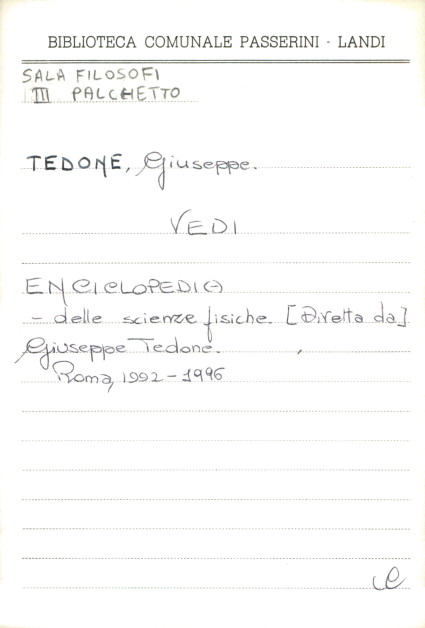 BIBLIOTECA COMUNALE PASSERINI - LANDI
SALA FILOSOFI
III PALCHETTO
TEDONE, Giuseppe.
VEDI
ENCICLOPEDIA
- delle scienze fisiche. [Diretta da]
Giuseppe Tedone.
Roma, 1992-1996